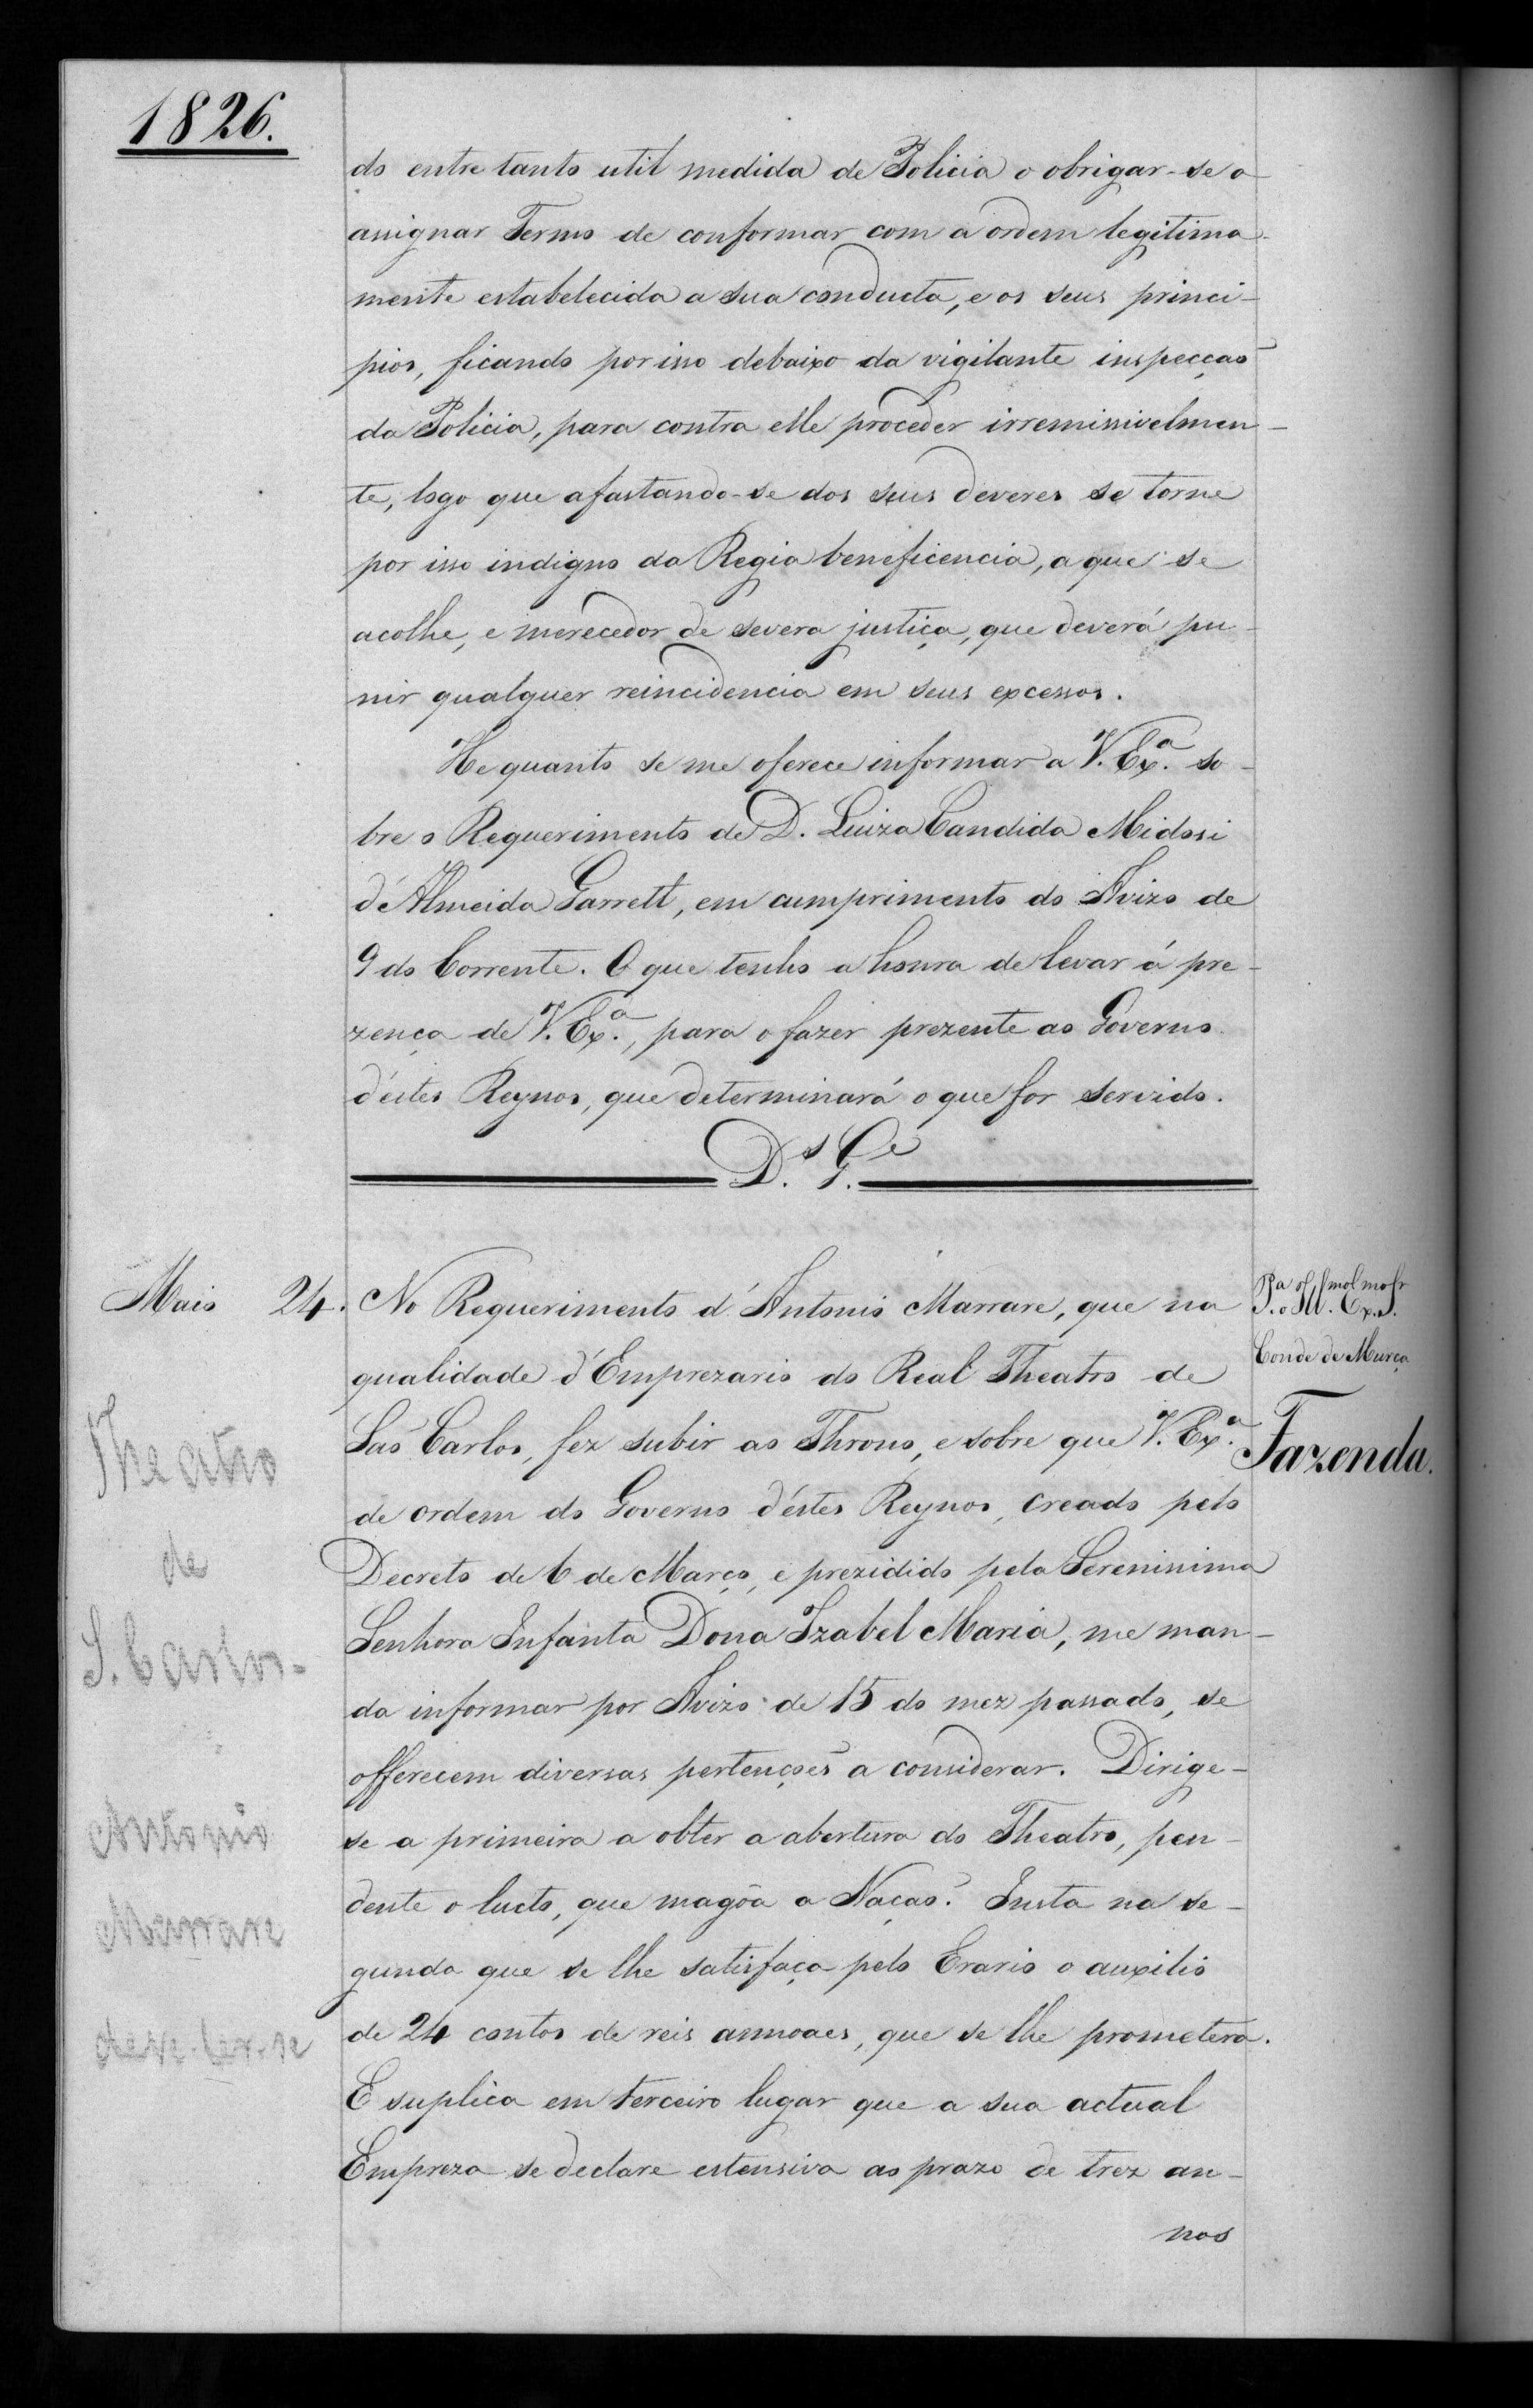 1826.
do entretanto util medida de Policia o obrigar-se a
assignar Termo de conformar com a ordem legitima-
mente estabelecida a sua conducta, e os seus princi-
pios, ficando por isso debaixo da vigilante inspecçaõ
da Policia, para contra elle proceder irremissivelmen-
te, logo que afastando-se dos seus deveres se torne
por isso indigno da Regia beneficencia, a que se
acolhe, e merecedor de severa justiça, que deverá pu-
nir qualquer reincidencia em seus excessos.
He quanto se me oferece informar a V. Ex.ª so-
bre o Requerimento de D. Luiza Candida Midosi
d'Almeida Garrett, em cumprimento do Avizo de
9 do Corrente. O que tenho a honra de levar á pre-
zença de V. Ex.ª, para o fazer prezente ao Governo
d'estes Reynos, que determinará o que for servido.
D.s G.e
Maio 24. No Requerimento d'Antonio Marrare, que na
qualidade d'Emprezario do Real Theatro de
Saõ Carlos, fez subir ao Throno, e sobre que V. Ex.ª
de ordem do Governo d'estes Reynos, creado pelo
Decreto de 6 de Março, e prezidido pela Serenissima
Senhora Infanta Dona Izabel Maria, me man-
da informar por Avizo de 15 do mez passado, se
offerecem diversas pertençoẽs a considerar. Dirige-
se a primeira a obter a abertura do Theatro, pen-
dente o lucto, que magôa a Naçaõ. Insta na se-
gunda que se lhe satisfaça pelo Erario o auxilio
de 24 contos de reis annoaes, que se lhe prometera.
E suplica em terceiro lugar que a sua actual
Empreza se declare estensiva ao prazo de trez an-
nos
P.a o Ill.mo Ex.mo Sr.
Conde de Murça
Fazenda.
Theatro
de
S. Carlos-
Antonio
Marrare
deve-ler-se